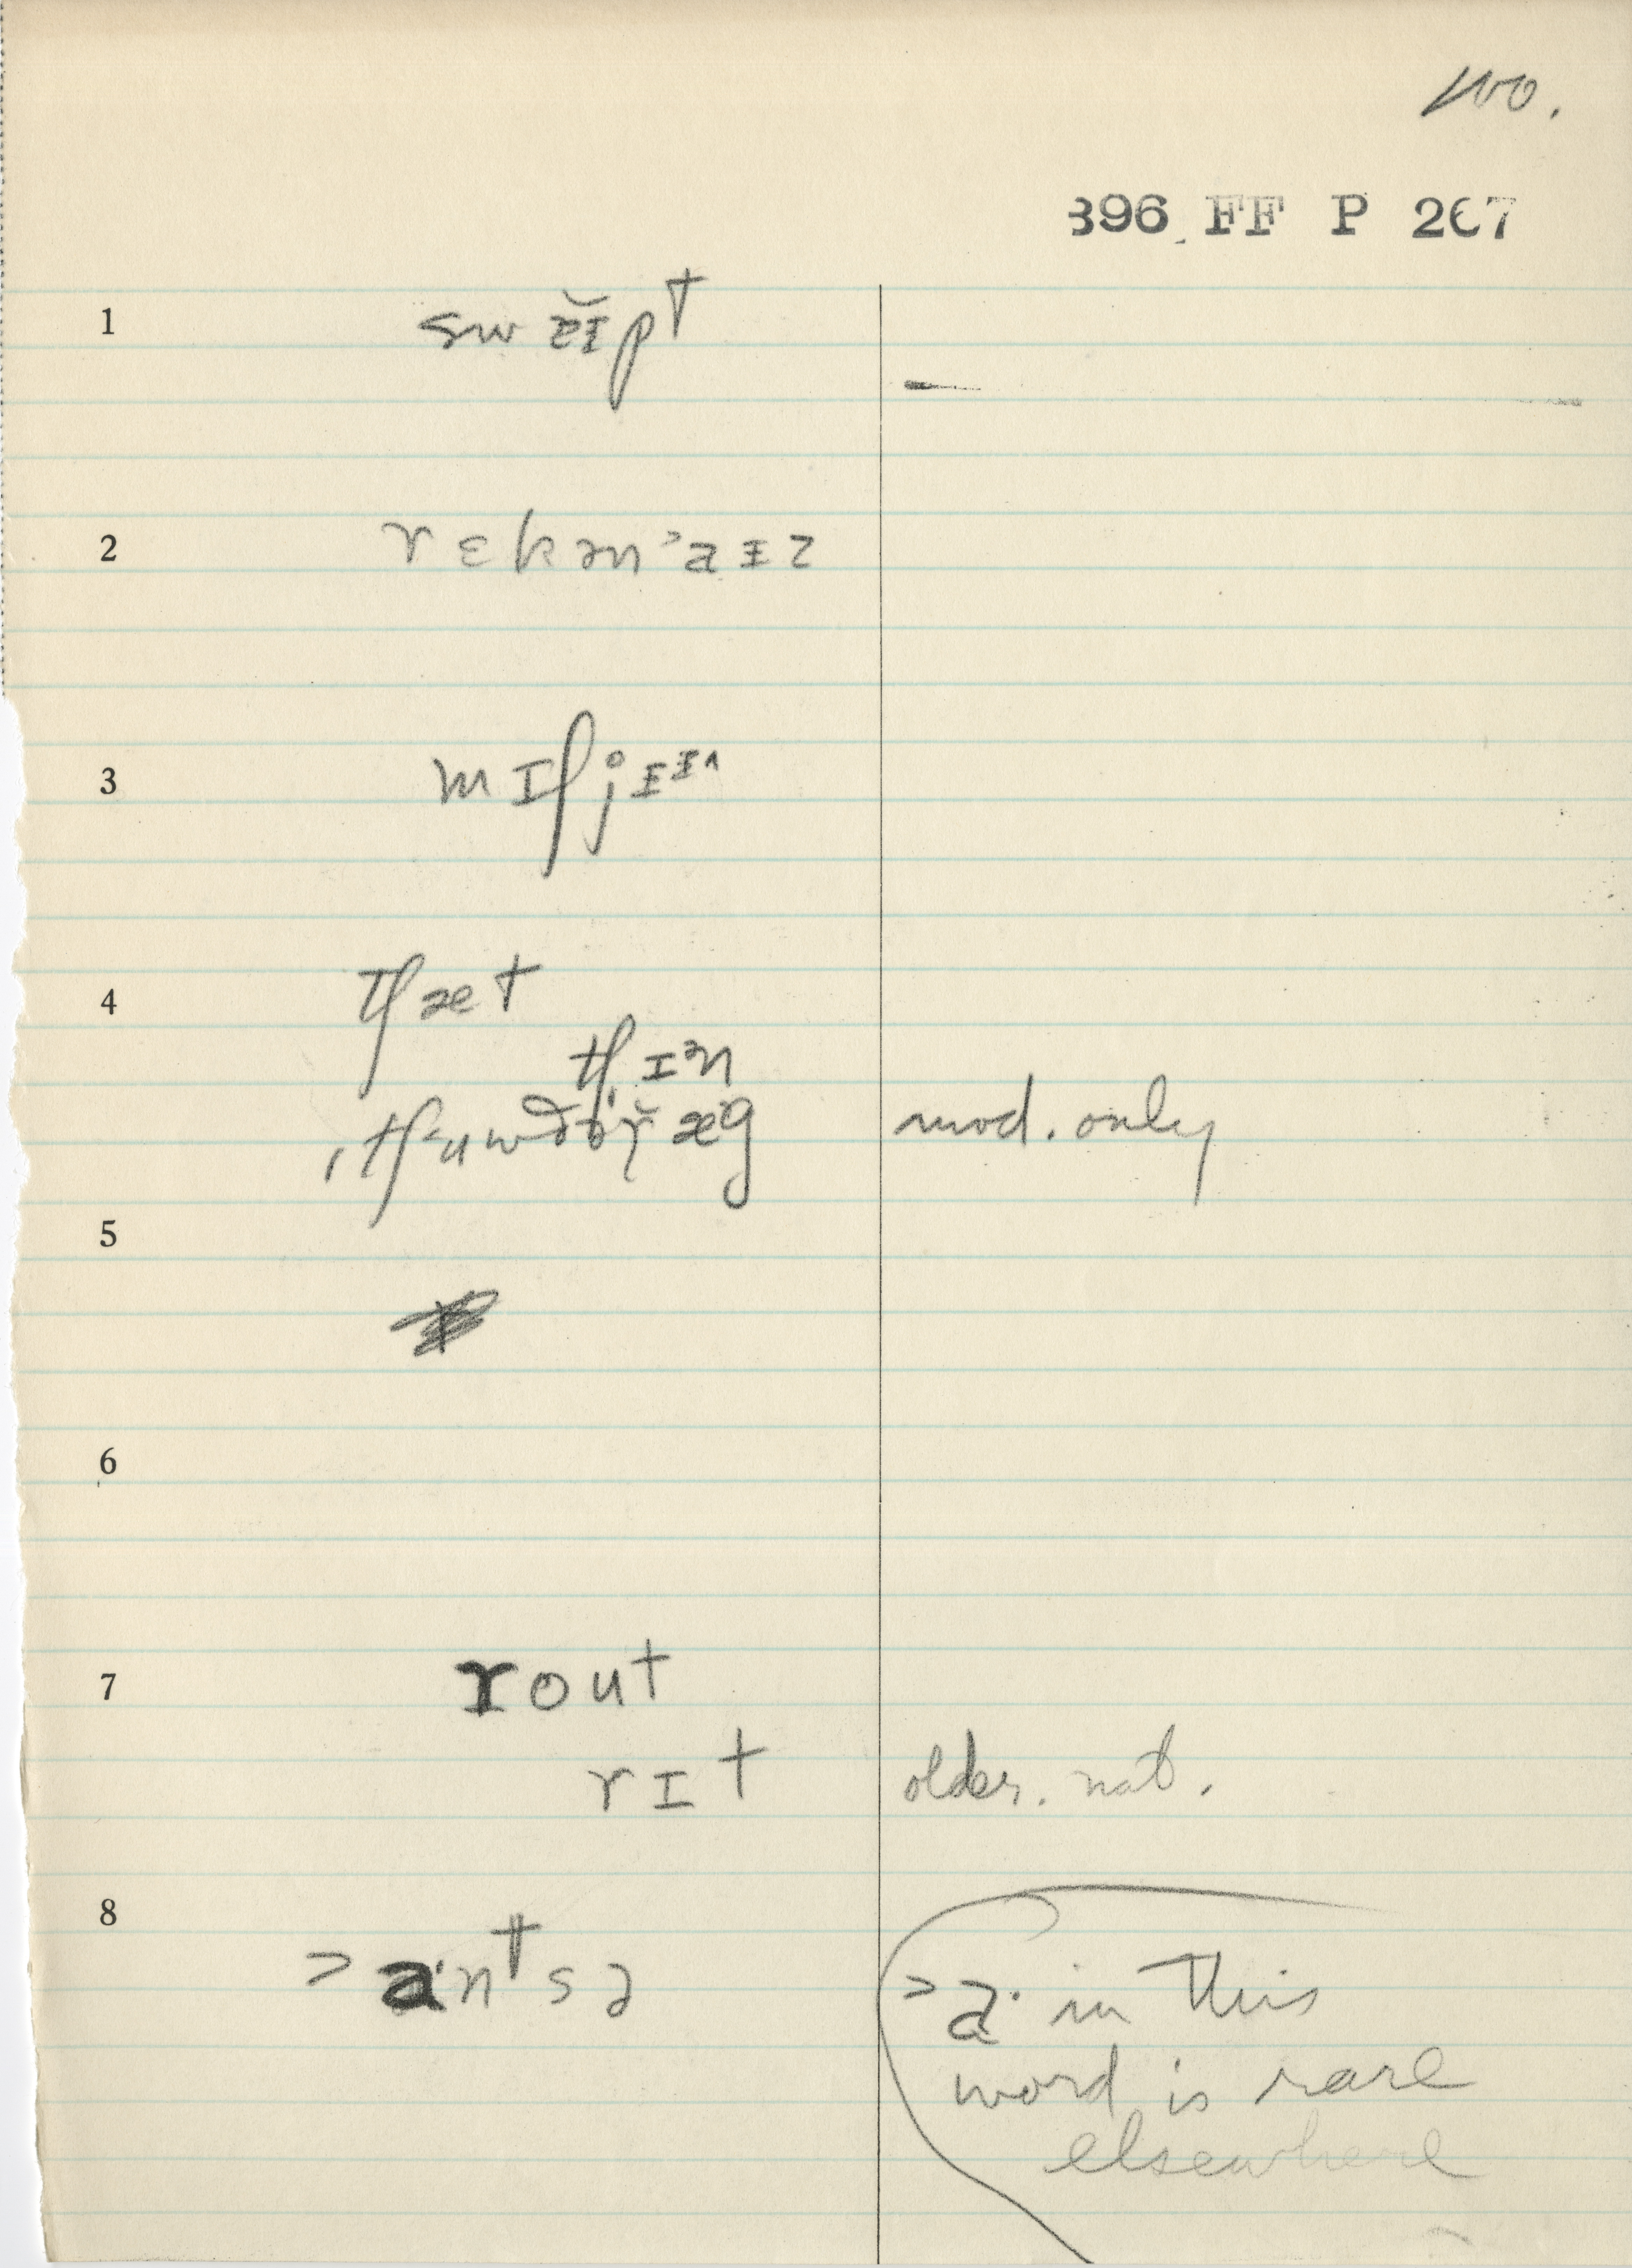 100.
396 FF P 267
1 swɛ̆ɪpᵗ
2 rɛkən˃aɪz
3 mɪʃjɪᶤ˄
4 tʃæt
tʃɪᵊn
mod. only
5
6
7 rout
rɪt older. nat.
8 ˃a·nᵗsə
˃a· in this
word is rare
elsewhere